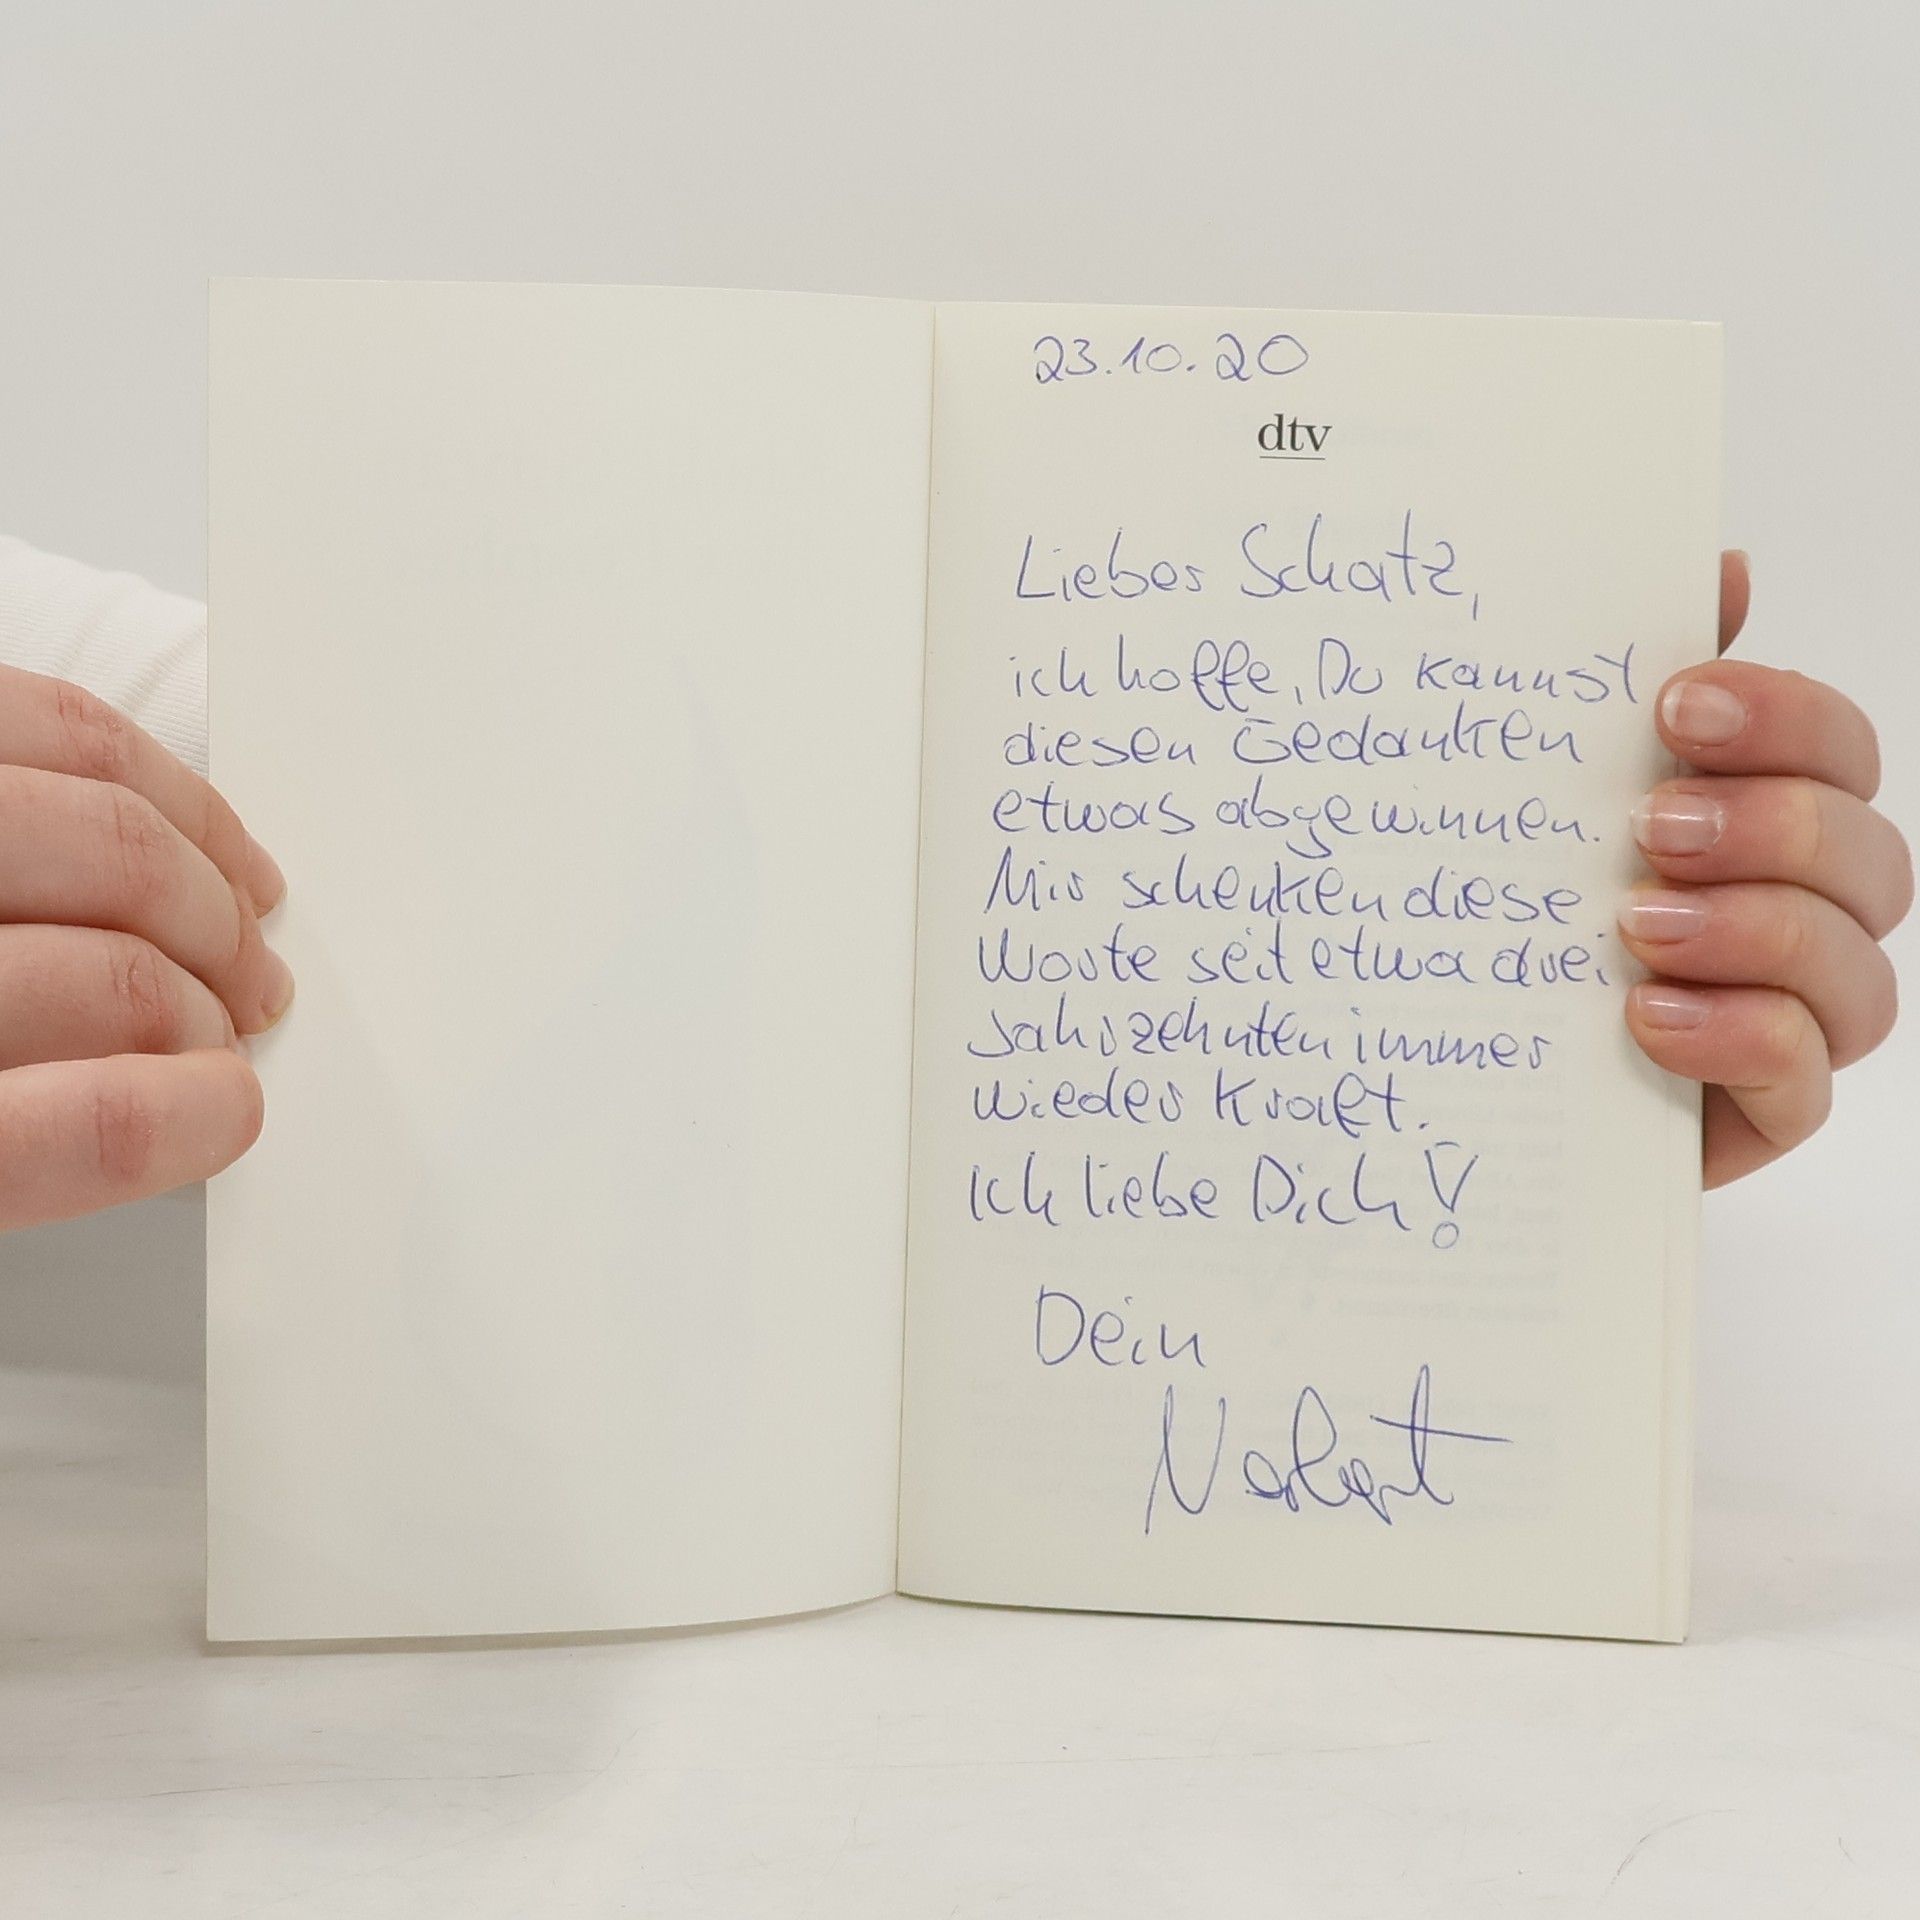 23.10.20
dtv
Lieber Schatz,
ich hoffe, Du kannst
diesen Gedanken
etwas abgewinnen.
Mir schenken diese
Worte seit etwa drei
Jahrzehnten immer
wieder Kraft.
Ich liebe Dich!
Dein
Norbert